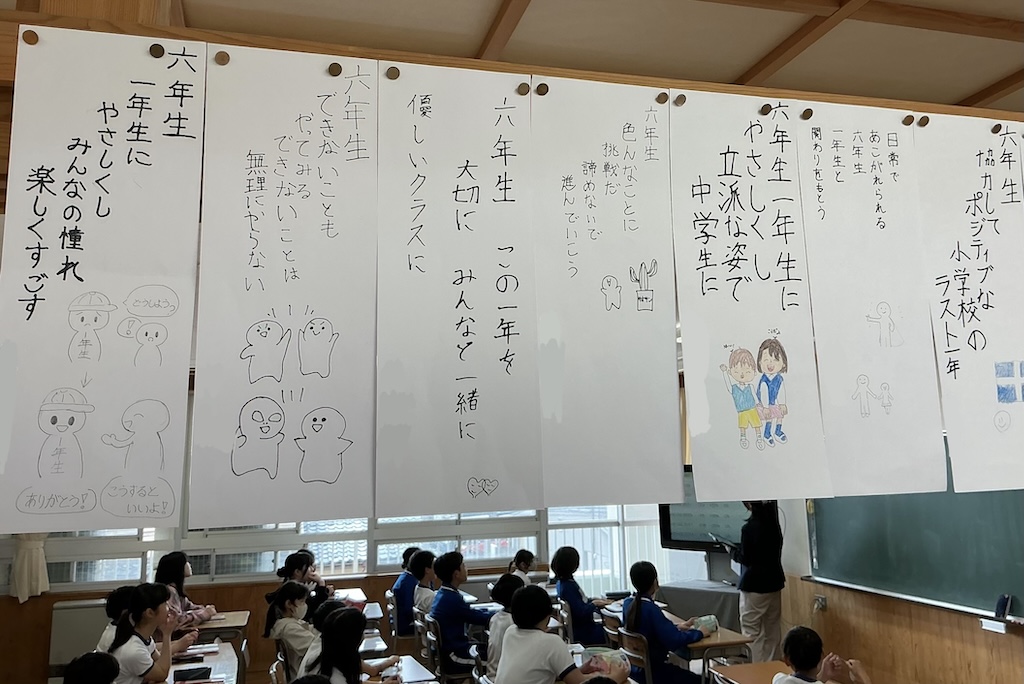 六年生
一年生に
やさしくし
みんなの憧れ
楽しくすごす
どうしよう
!
一年生
一年生
ありがとう!
こうすると
いいよ!
六年生
できないことも
やってみる
できないことは
無理にやらない
六年生 この一年を
大切に みんなと一緒に
優しいクラスに
六年生
色んなことに
挑戦だ
諦めないで
進んでいこう
六年生一年生に
やさしくし
立派な姿で
中学生に
日常で
あこがれられる
六年生
一年生と
関わりをもとう
六年生
協力して
ポジティブな
小学校の
ラスト一年